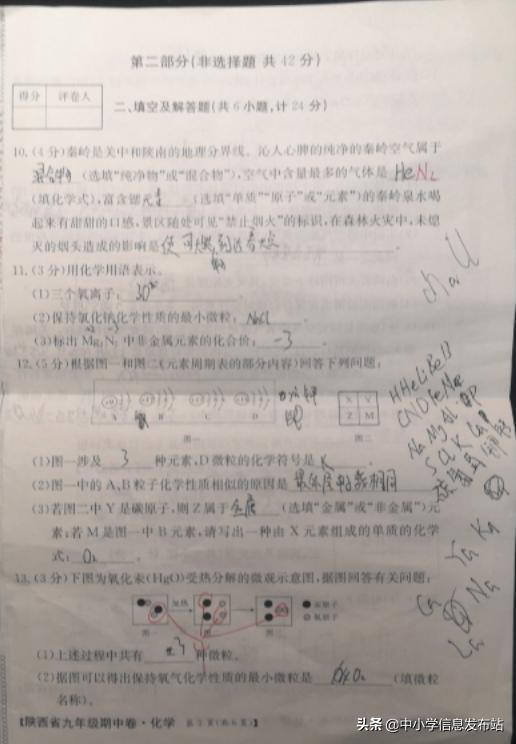 第二部分(非选择题 共42分)
得分 评卷人
二、填空及解答题(共6小题,计24分)
10.(4分)秦岭是关中和陕南的地理分界线。沁人心脾的纯净的秦岭空气属于
混合物(选填“纯净物”或“混合物”),空气中含量最多的气体是 He N₂
(填化学式),富含锶元素(选填“单质”“原子”或“元素”)的秦岭泉水喝
起来有甜甜的口感,景区随处可见“禁止烟火”的标识,在森林火灾中,未熄
灭的烟头造成的影响是使可燃物达到着火点
11.(3分)用化学用语表示。
(1)三个氧离子:
(2)保持氯化钠化学性质的最小微粒: NaCl
(3)标出Mg₃N₂中非金属元素的化合价: -3
12.(5分)根据图一和图二(元素周期表的部分内容)回答下列问题:
A B C D
X Y
Z M
图一 图二
(1)图一涉及 3 种元素,D微粒的化学符号是 K
(2)图一中的A、B粒子化学性质相似的原因是 最外层电子数相同
(3)若图二中Y是碳原子,则Z属于 金属 (选填“金属”或“非金属”)元
素;若M是图一中B元素,请写出一种由X元素组成的单质的化学
式:
13.(3分)下图为氧化汞(HgO)受热分解的微观示意图,据图回答有关问题:
加热
汞原子
氧原子
图一
(1)上述过程中共有 种微粒。
(2)据图可以得出保持氧气化学性质的最小微粒是 (填微粒
名称)。
H He Li Be B
C N O F Ne Na
Mg Al
S Cl K Ca
Na
【陕西省九年级期中卷·化学 第3页(共6页)】
头条 @中小学信息发布站